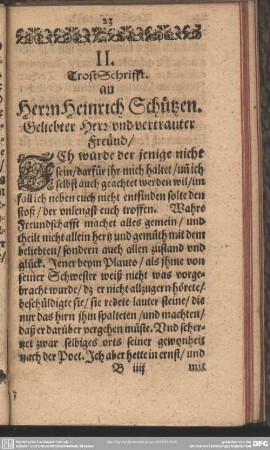 23
II.
Trost Schrifft.
an
Herrn Heinrich Schützen.
Geliebter Herr/ vnd vertrauter
Freünd/
ICh würde der jenige nicht
sein/ darfür ihr mich haltet/ uñ ich
selbst auch geachtet werden wil/ im
fall ich neben euch nicht entfinden solte den
stoß/ der vnlengst euch troffen. Wahre
Freundschafft machet alles gemein/ und
theilt nicht allein hertz und gemüth mit dem
beliebten/ sondern auch allen zustand vnd
glück. Jener beym Plauto/ als jhme von
seiner Schwester weiß nicht was vorge-
bracht wurde/ dz er nicht allzugern hörete/
beschüldigte sie/ sie redete lauter steine/ die
nur das hirn jhm spalteten/ und machten/
daß er darüber vergehen müste. Vnd scher-
tzet zwar selbiges orts seiner gewonheit
nach der Poet. Ich aber hette in ernst/ und
B iiij